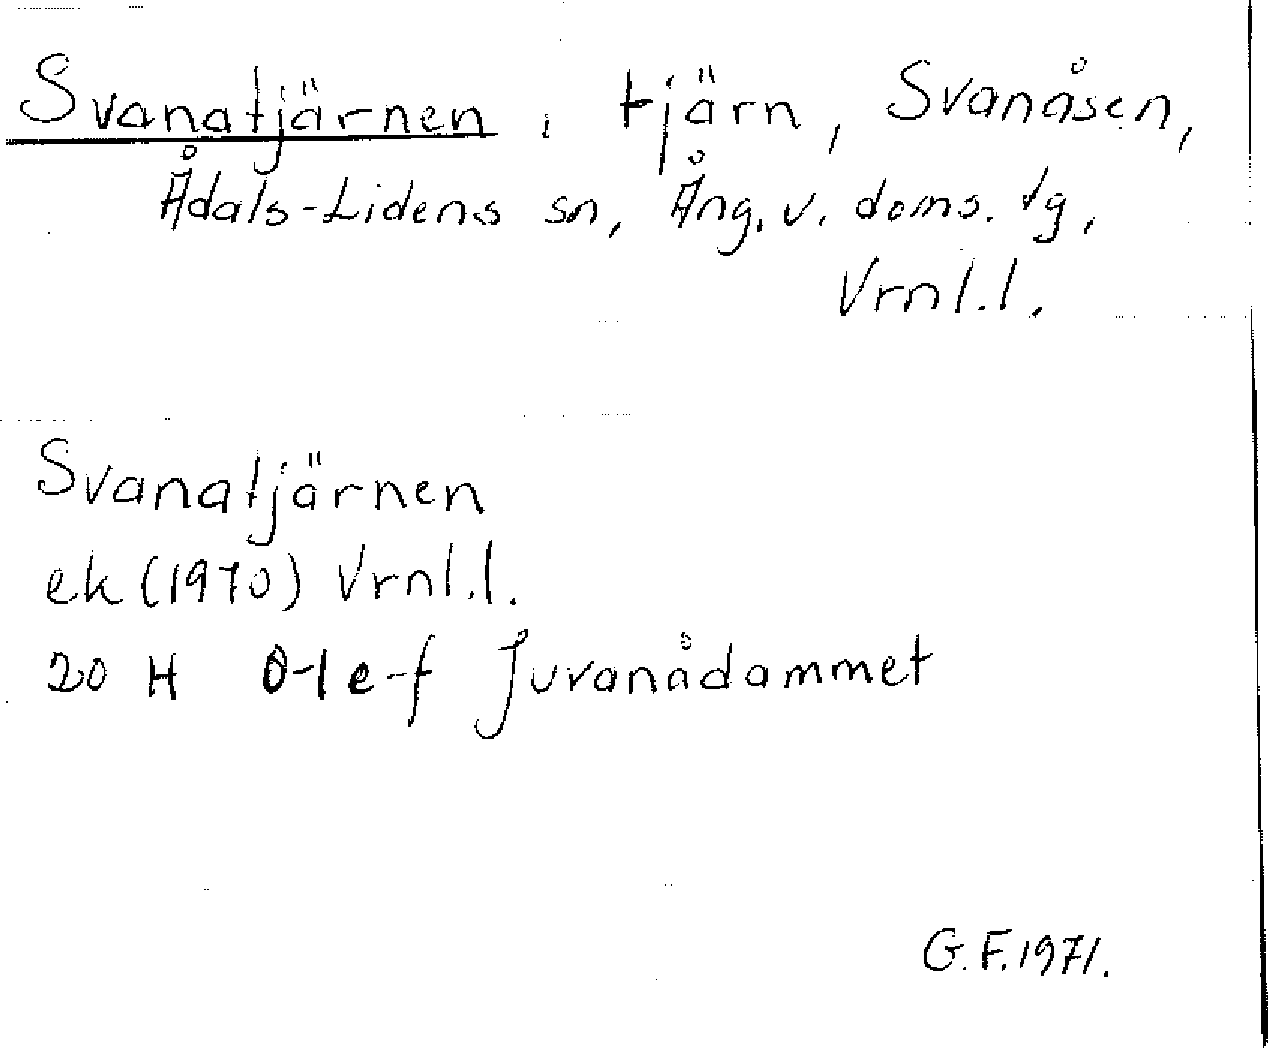 Svanatjärnen, tjärn, Svanåsen,
Ådals-Lidens sn, Ång. v. doms. tg,
Vrnl.l.
Svanatjärnen
ek (1970) Vrnl.l.
20 H 0-1 e-f Juvanådammet
G.F. 1971.